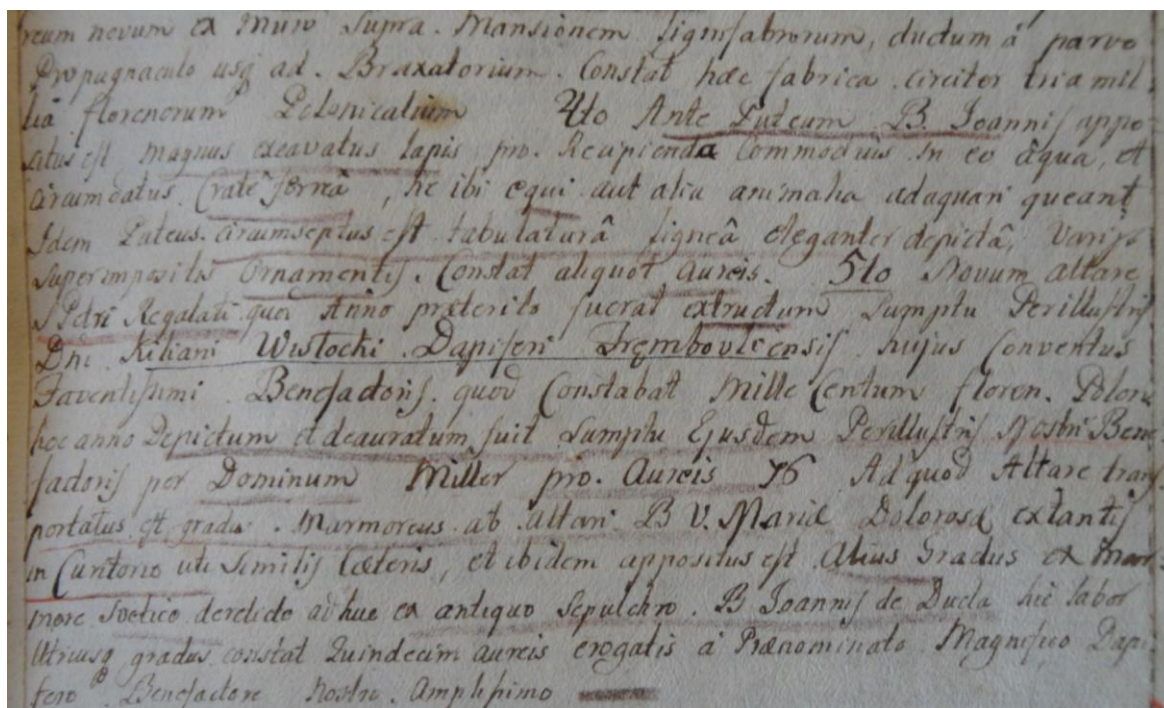 reum novum ex Muro Supra. Mansionem lignifabrorum, ductum â parvo
Propugnaculo usq ad. Braxatorium. Constat hæc fabrica circiter tria mil
lia florenorum Polonicalium 4to Ante Puteum B. Joannis appo
situs est magnus excavatus Lapis, pro. Recipienda Commodius in eo aqua, et
circumdatus Crate ferreâ, ne ibi equi aut alia animalia adaquari queant,
Idem Puteus. circumseptus est tabulaturâ ligneâ eleganter depictâ, Varijs
superimpositis Ornamentis. Constat aliquot aureis. 5to Novum altare
S Petri Regalati quod Anno præterito fuerat extructum Sumptu Perillustris
Dni Kiliani Wisłocki Dapiferi Trembovlensis hujus Conventus
Faventissimi Benefactoris. quod Constabat Mille Centum floren. Polon:
hoc anno Depictum et deauratum fuit Sumptu Ejusdem Perillustris Nostri Bene
factoris per Dominum Miller pro. Aureis 76 Ad quod Altare trans
portatus est gradus. Marmoreus ab altari B V. Mariæ Dolorosæ extantis
in Curitorio uti Similis Cæteris, et ibidem appositus est Alius Gradus ex Mar
more Svetico derelicto adhuc ex antiquo Sepulchro. B Joannis de Ducla hic labor
Utriusq gradus constat Quindecim aureis erogatis â Prænominato Magnifico Dapi
fero Benefactore Nostro Amplissimo